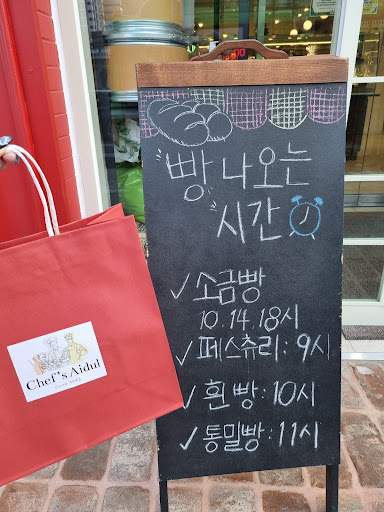 "빵 나오는
시간
✓ 소금빵
10. 14. 18시
✓ 페스츄리 : 9시
✓ 흰 빵 : 10시
✓ 통밀빵 : 11시
Chef's Aidul